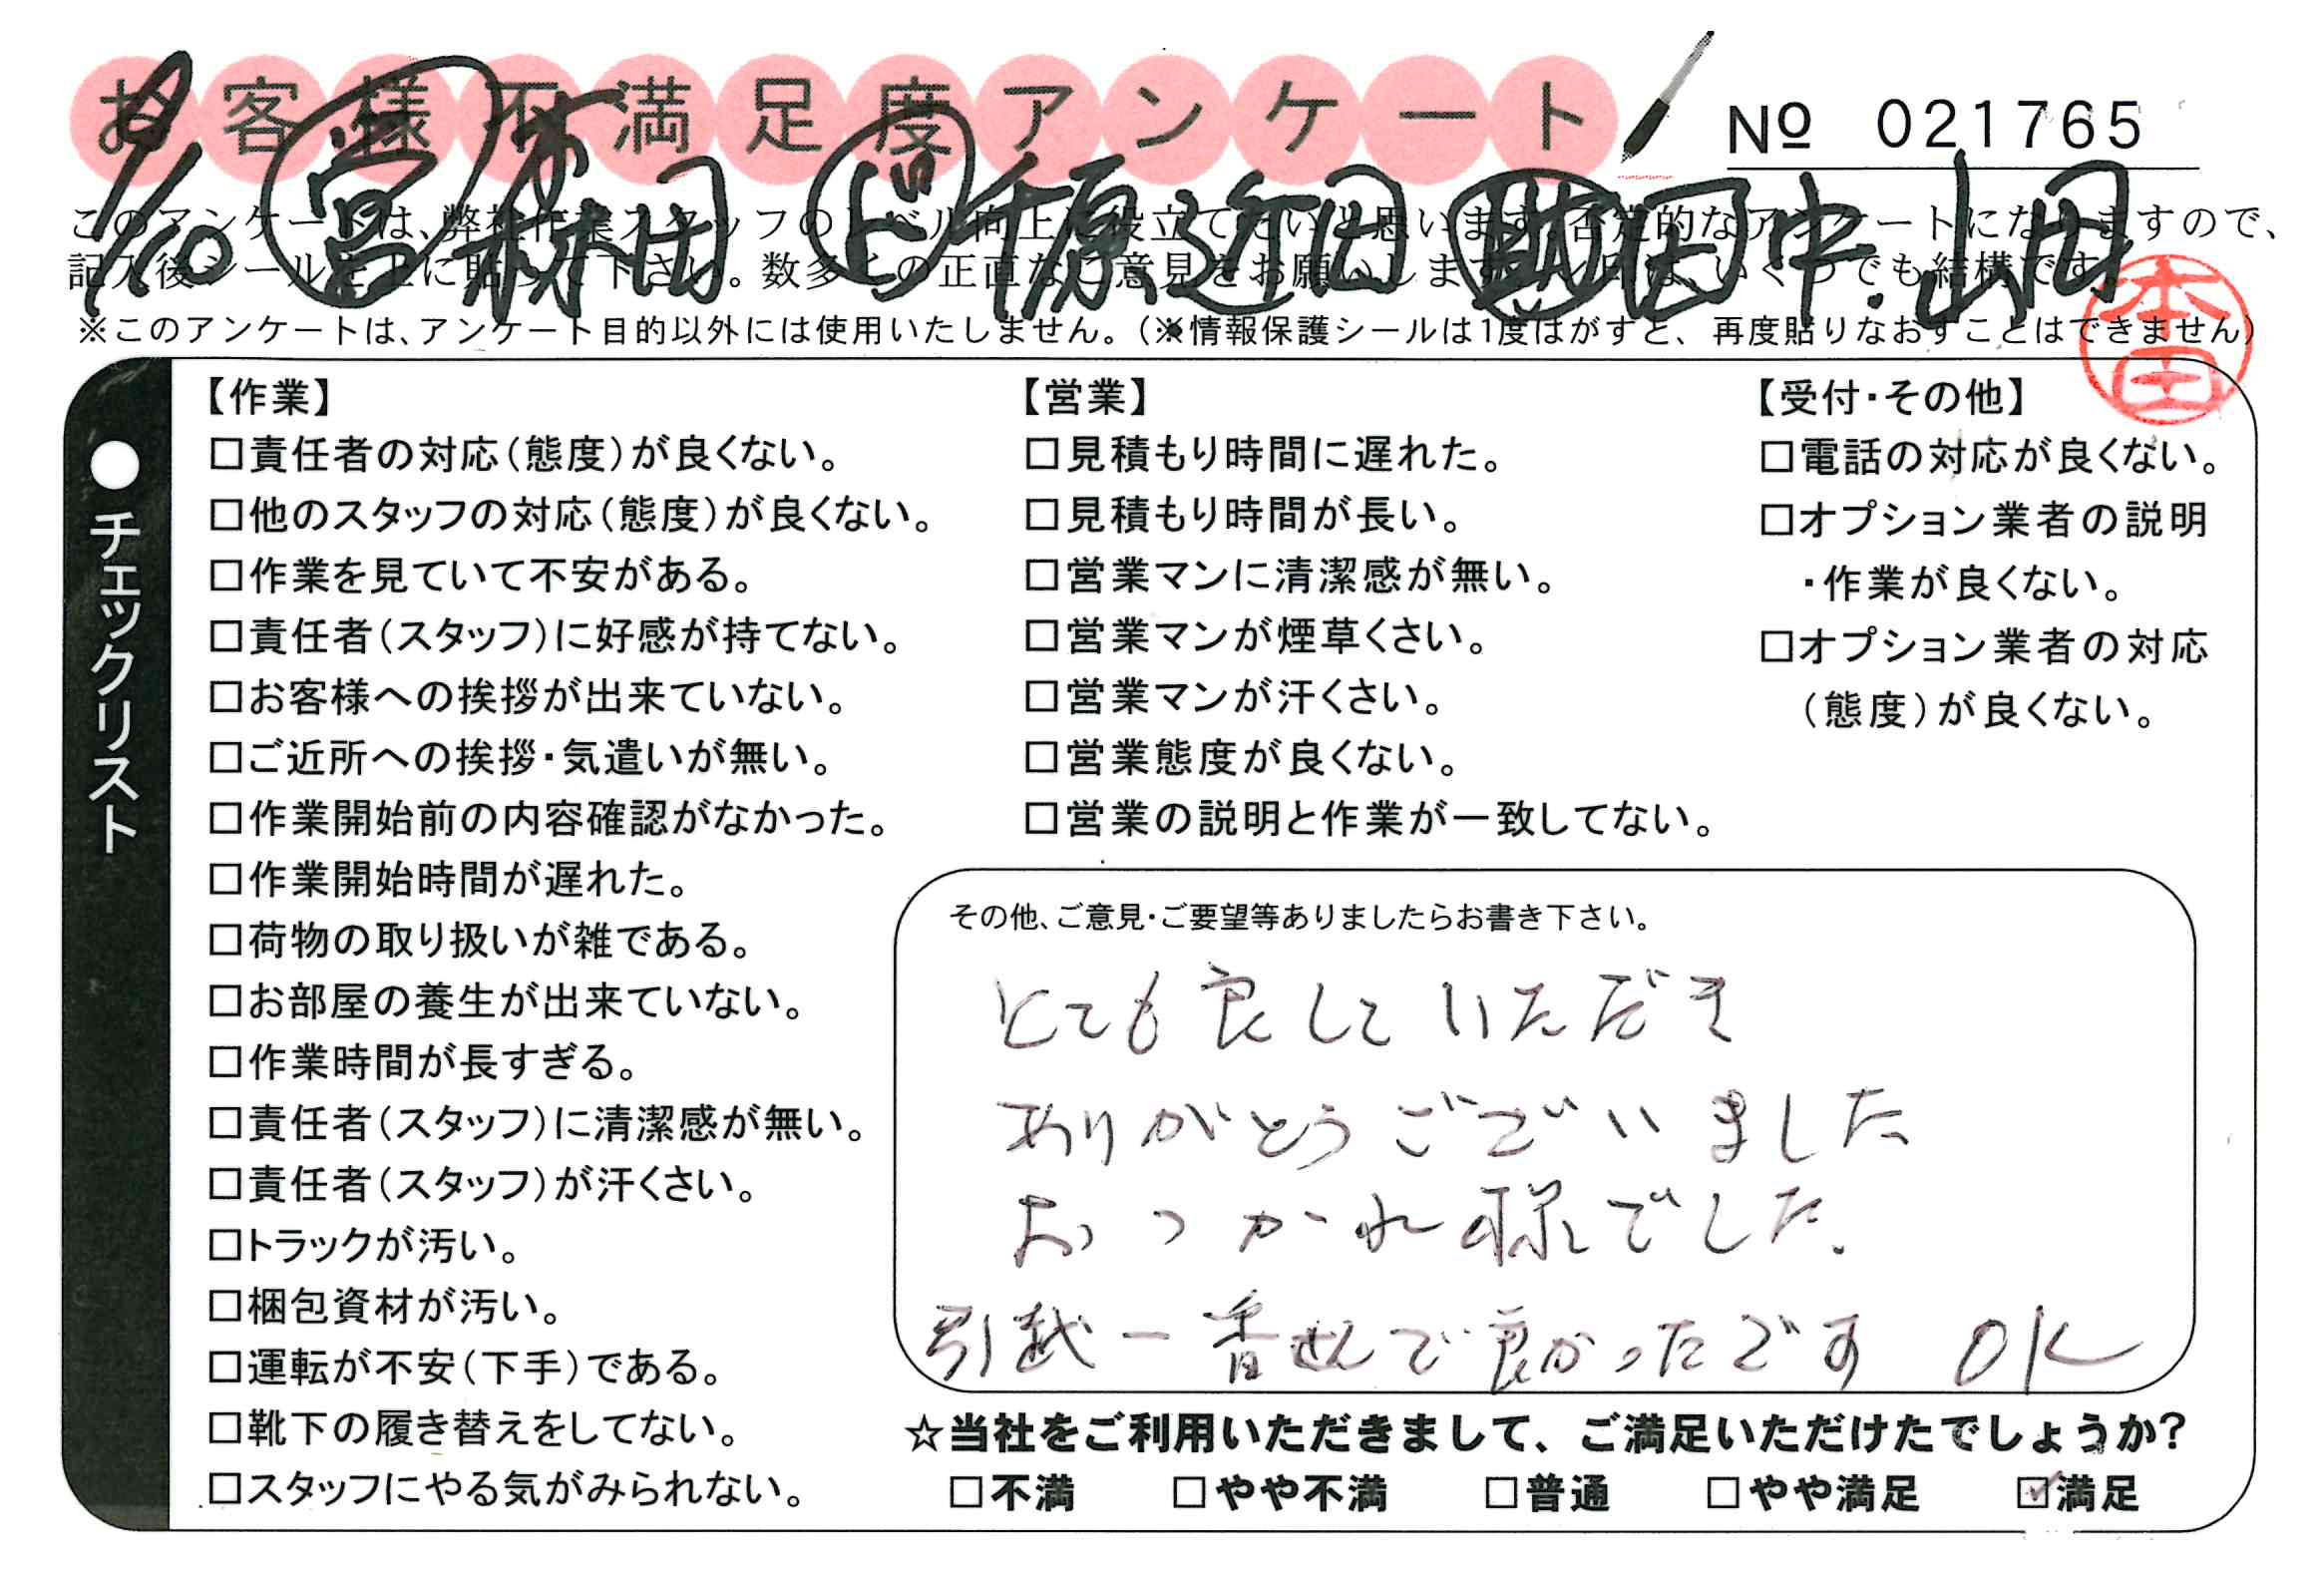 お客様不満足度アンケート
№ 021765
9/10 営 林田 千原 近田 田中.山田
このアンケートは、弊社作業スタッフのレベル向上に役立てたいと思います。否定的なアンケートになりますので、
記入後シールを上に貼って下さい。数多くの正直なご意見をお願いします。
※このアンケートは、アンケート目的以外には使用いたしません。(※情報保護シールは1度はがすと、再度貼りなおすことはできません)
本田
●チェックリスト
【作業】
□責任者の対応(態度)が良くない。
□他のスタッフの対応(態度)が良くない。
□作業を見ていて不安がある。
□責任者(スタッフ)に好感が持てない。
□お客様への挨拶が出来ていない。
□ご近所への挨拶・気遣いが無い。
□作業開始前の内容確認がなかった。
□作業開始時間が遅れた。
□荷物の取り扱いが雑である。
□お部屋の養生が出来ていない。
□作業時間が長すぎる。
□責任者(スタッフ)に清潔感が無い。
□責任者(スタッフ)が汗くさい。
□トラックが汚い。
□梱包資材が汚い。
□運転が不安(下手)である。
□靴下の履き替えをしてない。
□スタッフにやる気がみられない。
【営業】
□見積もり時間に遅れた。
□見積もり時間が長い。
□営業マンに清潔感が無い。
□営業マンが煙草くさい。
□営業マンが汗くさい。
□営業態度が良くない。
□営業の説明と作業が一致してない。
【受付・その他】
□電話の対応が良くない。
□オプション業者の説明
・作業が良くない。
□オプション業者の対応
(態度)が良くない。
その他、ご意見・ご要望等ありましたらお書き下さい。
とても良していただき
ありがとうございました
おつかれ様でした.
引越一番せんで良かったです OK
☆当社をご利用いただきまして、ご満足いただけたでしょうか?
□不満 □やや不満 □普通 □やや満足 ☑満足